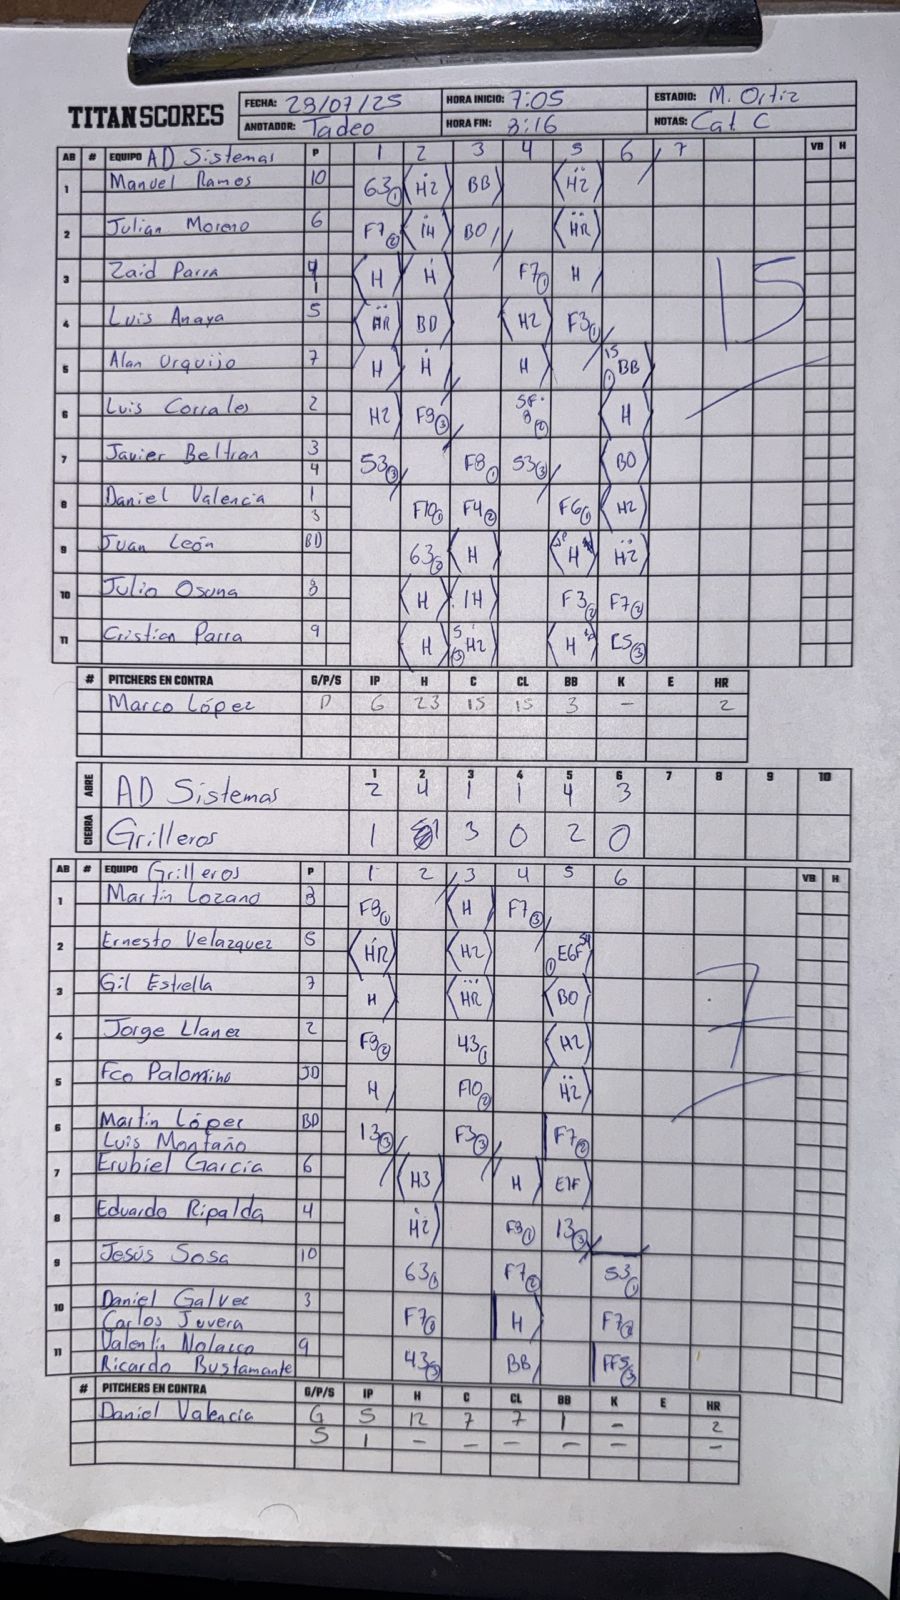 TITANSCORES
FECHA: 29/07/25 HORA INICIO: 7:05 ESTADIO: M. Ortiz
ANOTADOR: Tadeo HORA FIN: 8:16 NOTAS: Cat. C
AB # EQUIPO AD Sistemas P 1 2 3 4 5 6 7 VB H
1 Manuel Ramos 10 63① H2 BB H2
2 Julian Moreno 6 F7② IH BO HR
3 Zaid Parra 1 H H F7① H
4 Luis Anaya 5 HR BO H2 F3①
5 Alan Urquijo 7 H H H 15 ① BB
6 Luis Corrales 2 H2 F9③ SF 8② H
7 Javier Beltran 3 4 53③ F8① 53③ BO
8 Daniel Valencia 1 3 F10① F4② F6① H2
9 Juan León BD 63② H H H2
10 Julio Osuna 8 H IH F3② F7②
11 Cristian Parra 9 H 5 ③ H2 H ③
15
# PITCHERS EN CONTRA G/P/S IP H C CL BB K E HR
Marco López P 6 23 15 15 3 - 2
1 2 3 4 5 6 7 8 9 10
ABRE AD Sistemas 2 4 1 1 4 3
CIERRA Grilleros 1 1 3 0 2 0
AB # EQUIPO Grilleros P 1 2 3 4 5 6 VB H
1 Martin Lozano 8 F9① H F7③
2 Ernesto Velazquez 5 HR H2 ① E6F
3 Gil Estrella 7 H HR BO
4 Jorge Llanez 2 F9② 43① H2
5 Fco Palomino JD H F10② H2
6 Martin López BD 13③ F3③ F7②
Luis Montaño
7 Erubiel García 6 H3 H E1F
8 Eduardo Ripalda 4 H2 F9① 13③
9 Jesús Sosa 10 63① F7② 53①
10 Daniel Galvez 3 F7② H F7②
Carlos Juvera
11 Valentin Nolasco 9 43③ BB FF5③
Ricardo Bustamante
7
# PITCHERS EN CONTRA G/P/S IP H C CL BB K E HR
Daniel Valencia G 5 12 7 7 1 - 2
S 1 - - - - - -